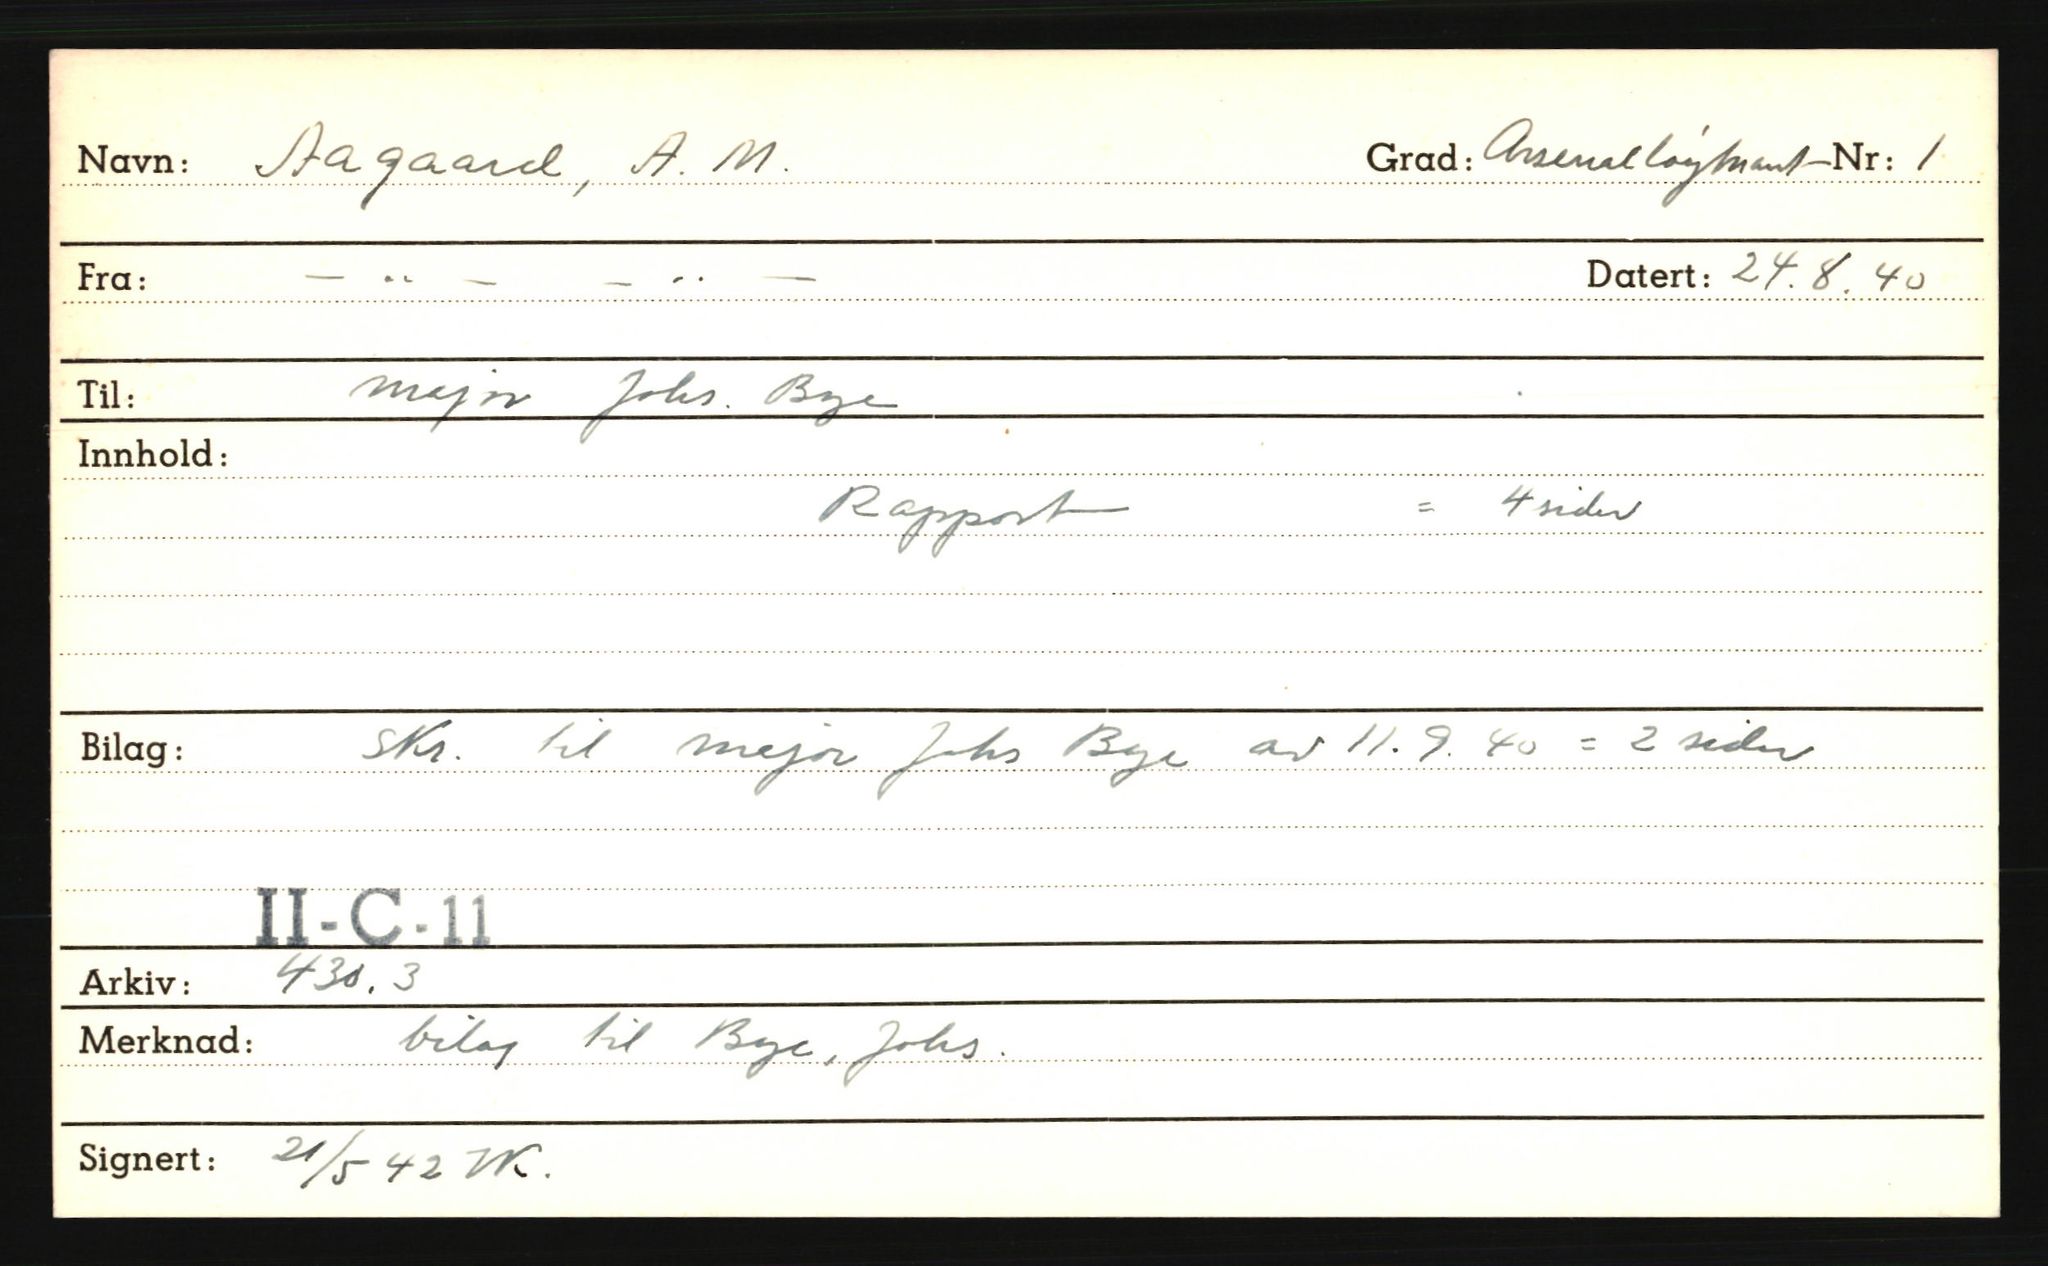 Navn: Aagaard, A. M. Grad: Arsenalløytnant Nr: 1
Fra: — .. — — .. — Datert: 24.8.40
Til: major Johs. Bye
Innhold:
Rapport = 4 sider
Bilag: Skr. til major Johs Bye av 11.9.40 = 2 sider
II-C-11
Arkiv: 430.3
Merknad: bilag til Bye, Johs.
Signert: 21/5 42